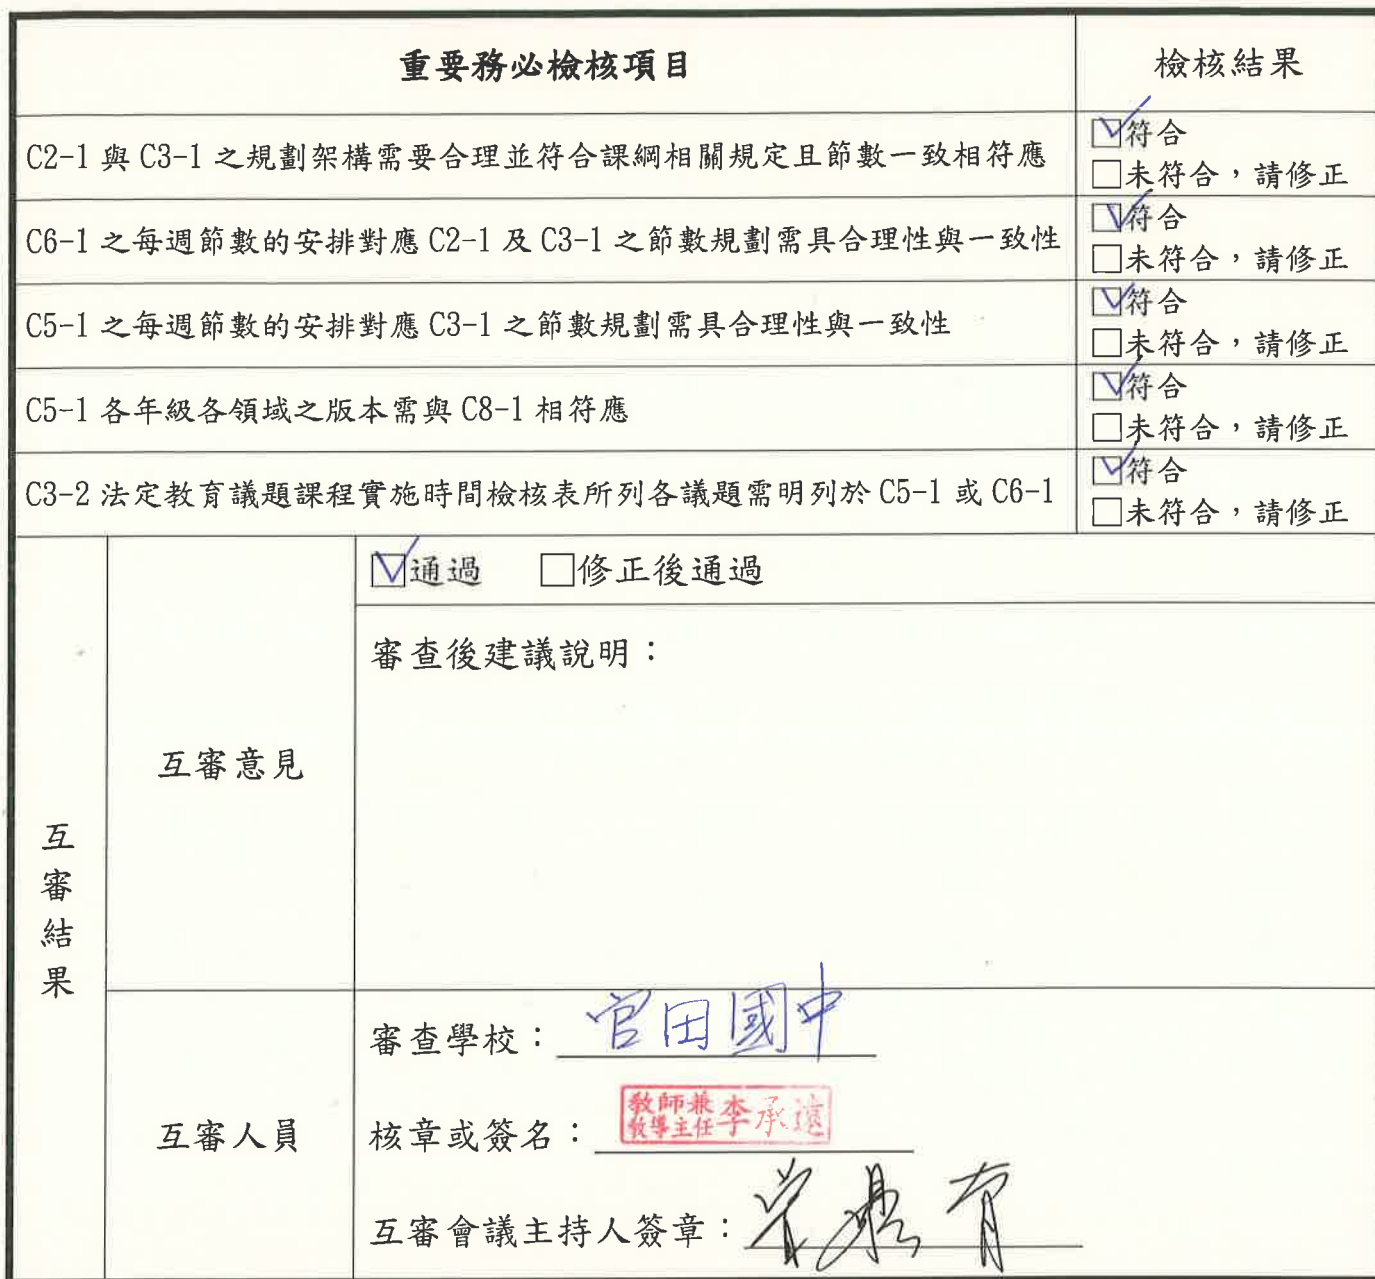 重要務必檢核項目
檢核結果
C2-1 與 C3-1 之規劃架構需要合理並符合課綱相關規定且節數一致相符應
☑符合
□未符合，請修正
C6-1 之每週節數的安排對應 C2-1 及 C3-1 之節數規劃需具合理性與一致性
☑符合
□未符合，請修正
C5-1 之每週節數的安排對應 C3-1 之節數規劃需具合理性與一致性
☑符合
□未符合，請修正
C5-1 各年級各領域之版本需與 C8-1 相符應
☑符合
□未符合，請修正
C3-2 法定教育議題課程實施時間檢核表所列各議題需明列於 C5-1 或 C6-1
☑符合
□未符合，請修正
互審結果
互審意見
☑通過 □修正後通過
審查後建議說明：
互審人員
審查學校：官田國中
核章或簽名：教師兼教導主任李承遠
互審會議主持人簽章：